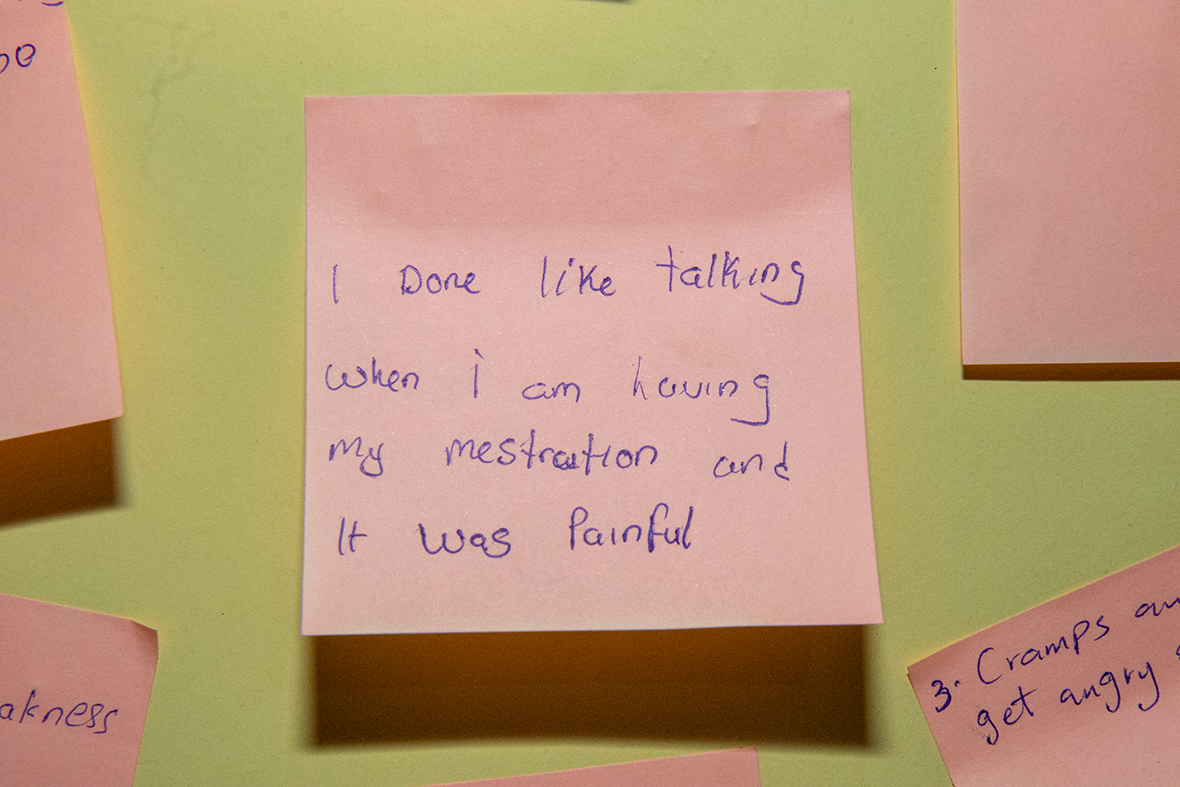 I Done like talking
when i am having
my mestration and
It was Painful
akness
3. Cramps
get angry